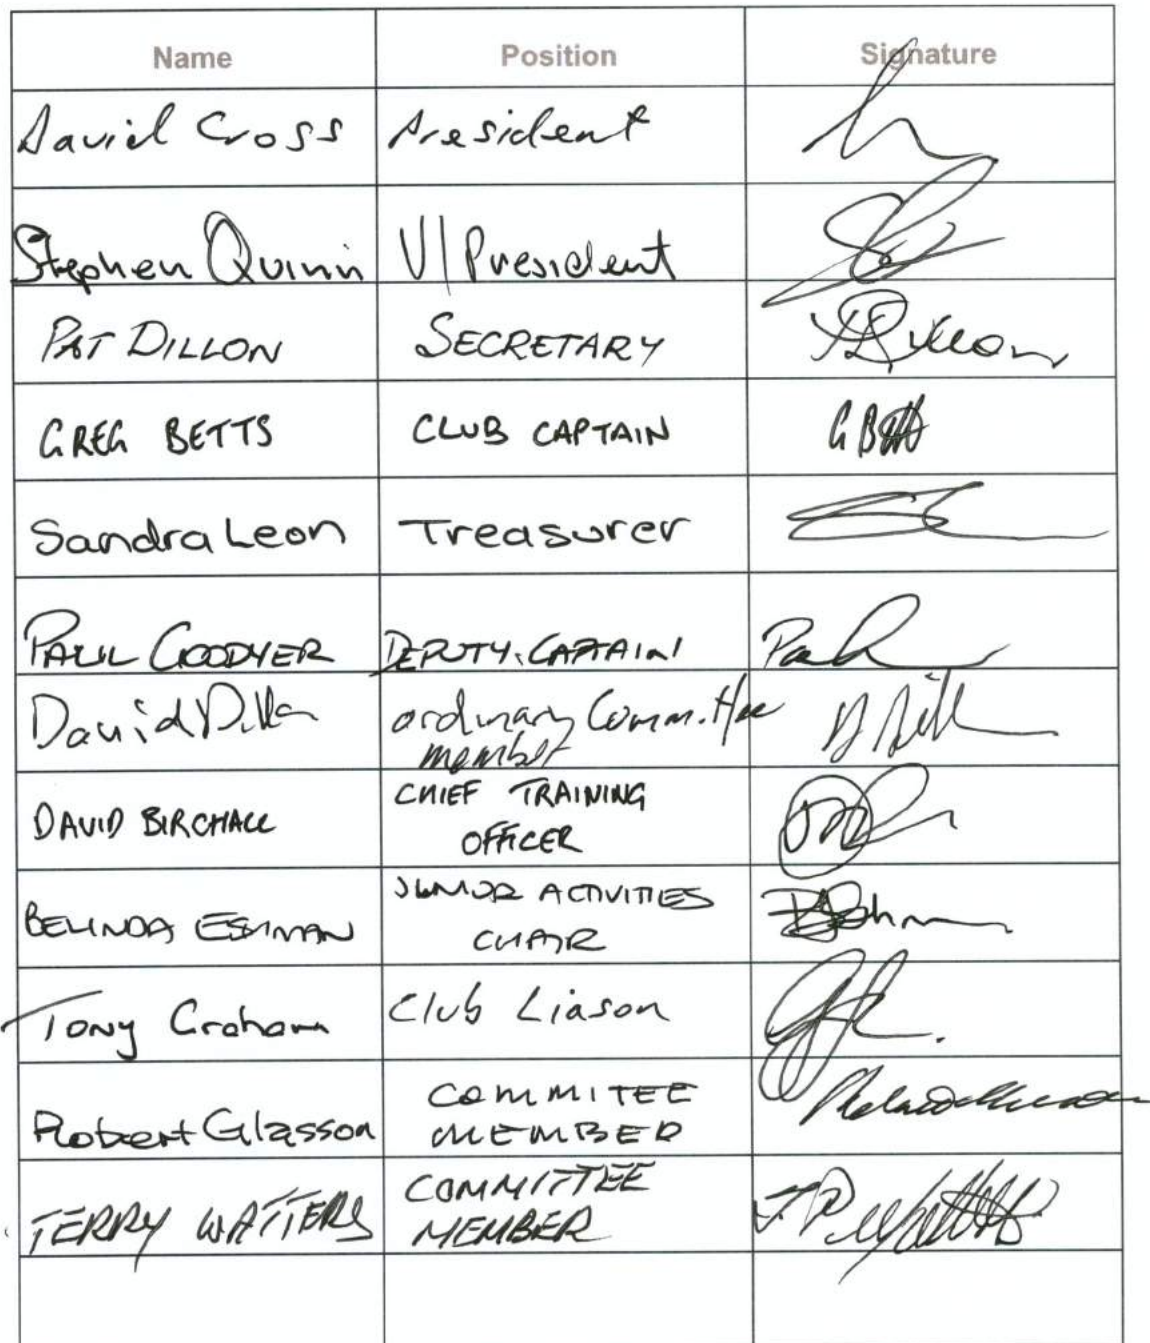 Name Position Signature
David Cross President
Stephen Quinn V/President
PAT DILLON SECRETARY
GREG BETTS CLUB CAPTAIN G Betts
Sandra Leon Treasurer
PAUL GOODYER DEPUTY. CAPTAIN
David Dillon ordinary Committee
member
DAVID BIRCHALL CHIEF TRAINING
OFFICER
BELINDA JUNIOR ACTIVITIES
CHAIR
Tony Graham Club Liason
Robert Glasson COMMITEE
MEMBER
TERRY WATTERS COMMITTEE
MEMBER